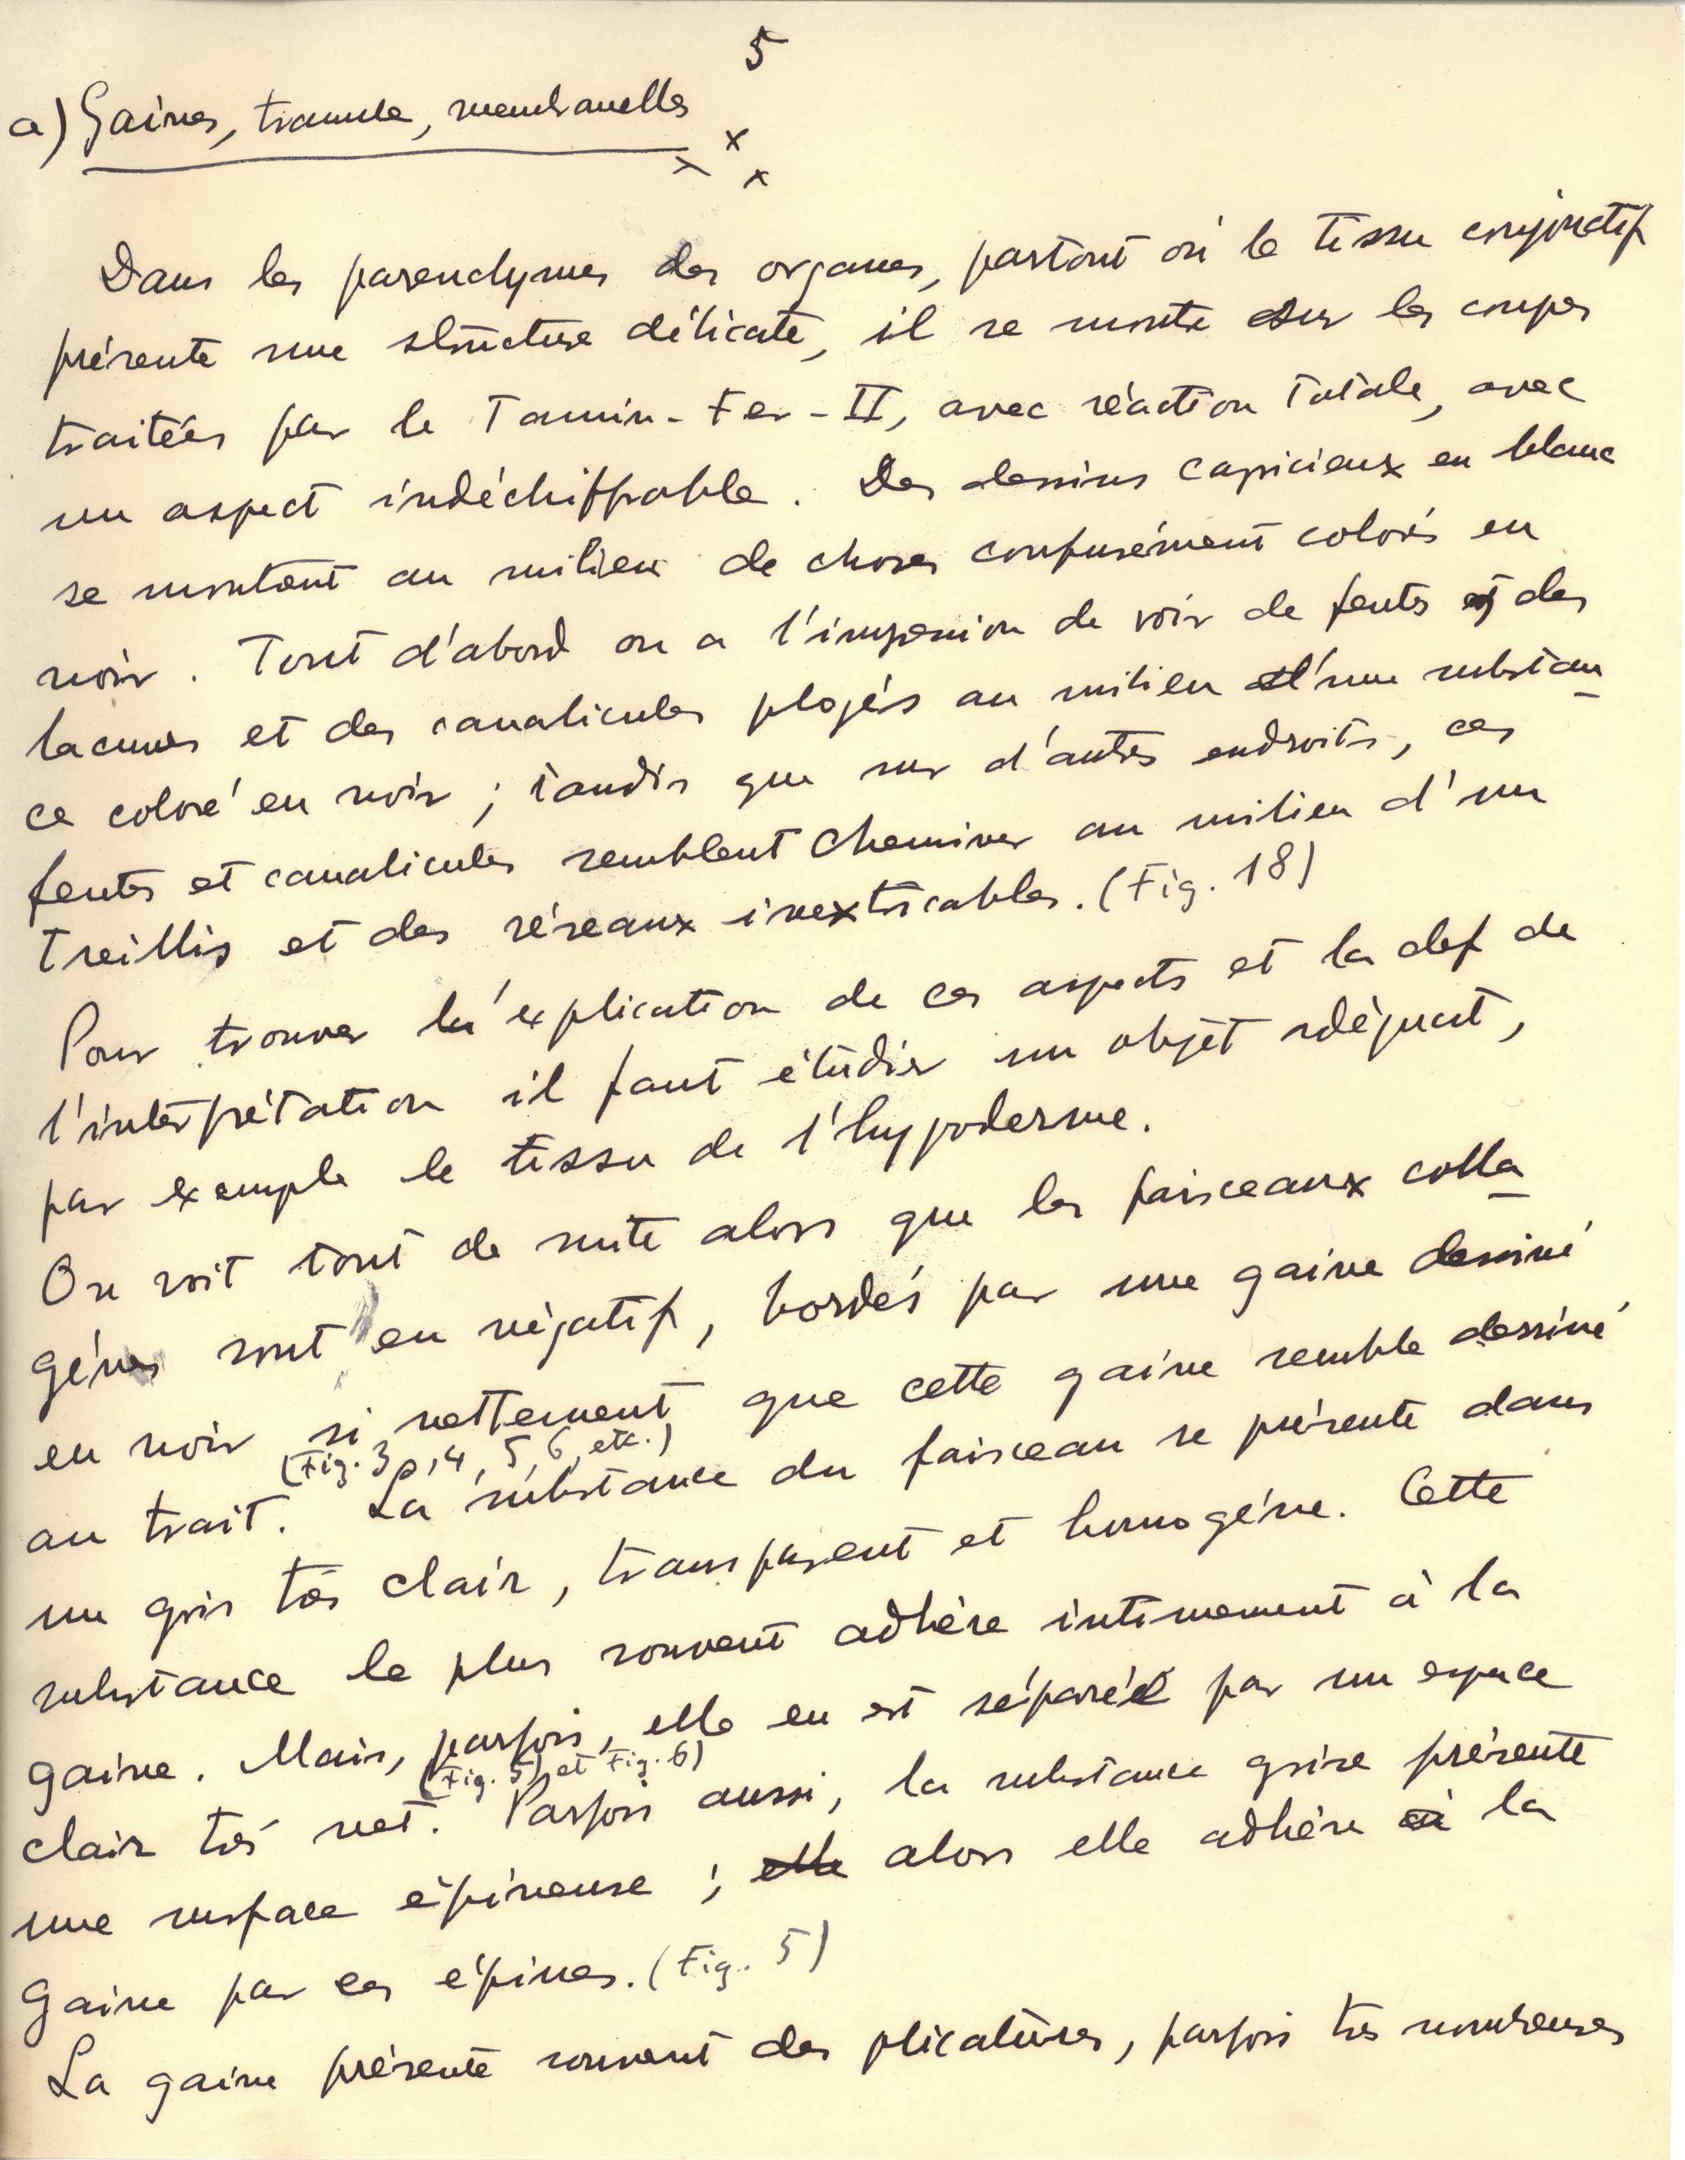 5
a) Gaines, tramule, membranelles
x x x
Dans les parenchymes des organes, partout où le tissu conjonctif
présente une structure délicate, il se montre sur les coupes
traitées par le Tannin-Fer-II, avec réaction totale, avec
un aspect indéchiffrable. Des dessins capricieux en blanc
se montrent au milieu de choses confusément colorés en
noir. Tout d'abord on a l'impression de voir de fentes et des
lacunes et des canalicules plogés au milieu d'une substan
ce coloré en noir ; tandis que sur d'autres endroits, ces
fentes et canalicules semblent cheminer au milieu d'un
treillis et des réseaux inextricables. (Fig. 18)
Pour trouver la explication de ces aspects et la clef de
l'interprétation il faut étudier un objet adéquat,
par exemple le tissu de l'hypoderme.
On voit tout de suite alors que les faisceaux colla
gènes sont en négatif, bordés par une gaine dessiné
en noir si nettement que cette gaine semble dessiné
(Fig. 3, 4, 5, 6, etc.)
au trait. La substance du faisceau se présente dans
un gris très clair, transparent et homogène. Cette
substance le plus souvent adhère intimement à la
gaine. Mais, parfois, elle en est séparée par un espace
(Fig. 5) et Fig. 6)
clair très net. Parfois aussi, la substance grise présente
une surface épineuse ; elle alors elle adhère à la
gaine par ces épines. (Fig. 5)
La gaine présente souvent des plicatures, parfois très nombreuses